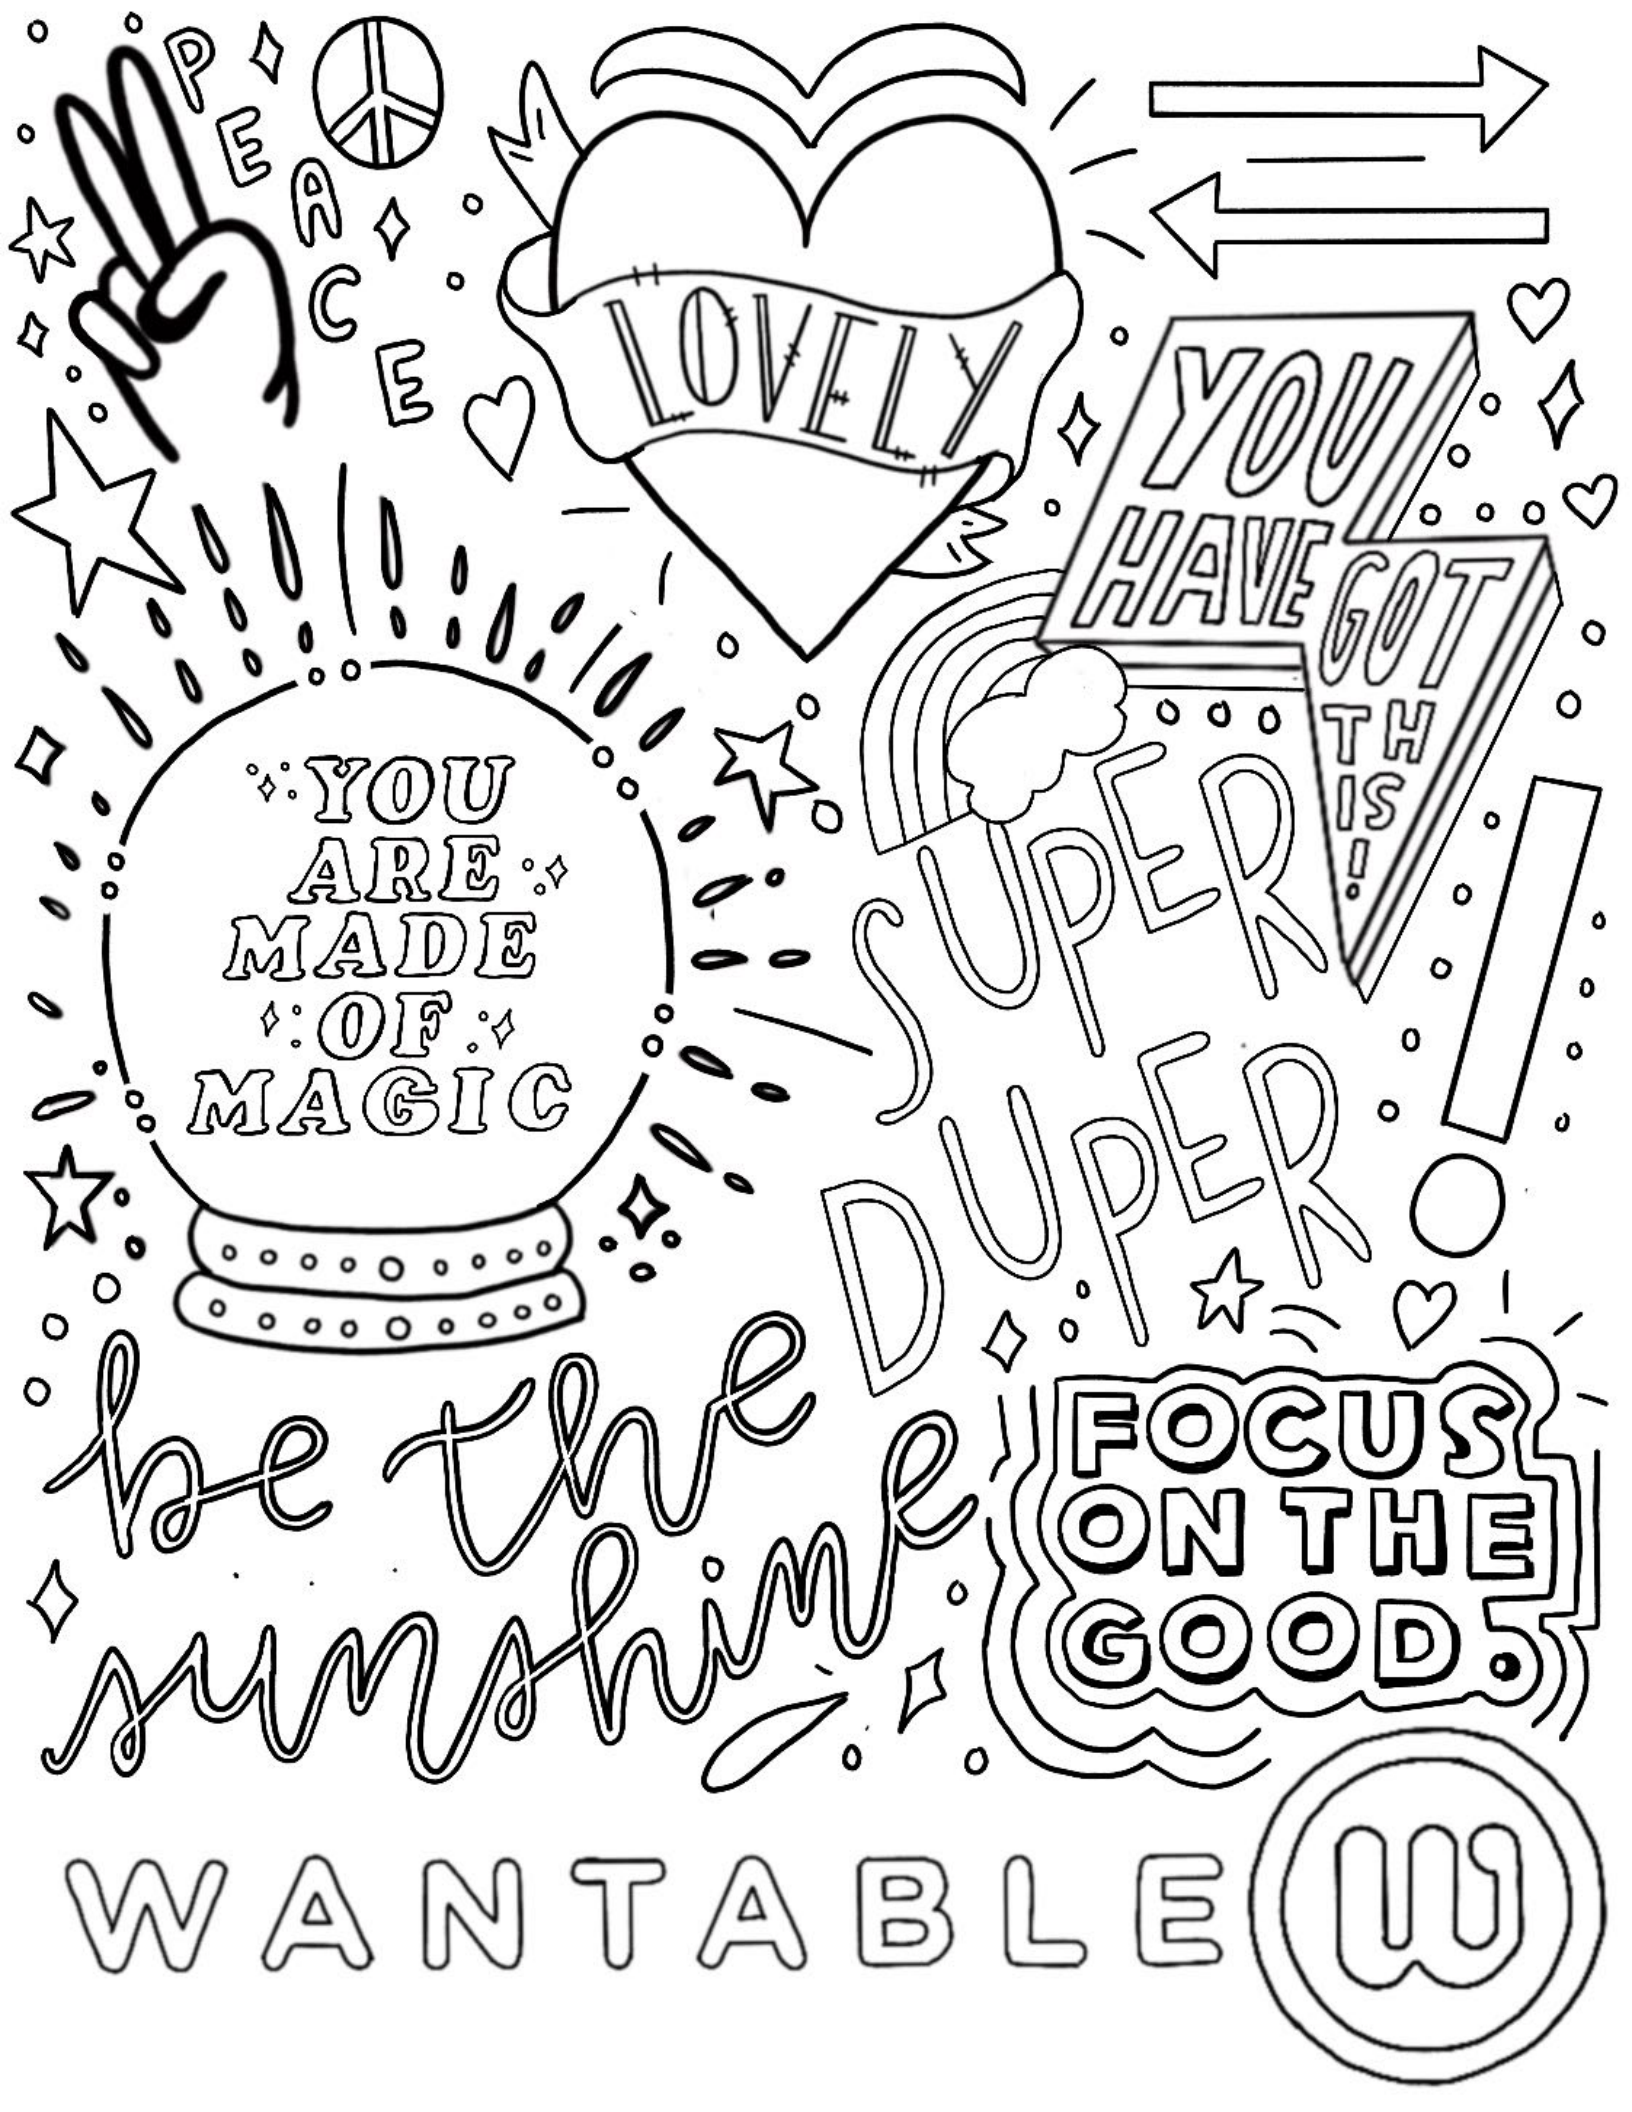 PEACE
LOVELY
YOU
HAVE GOT
TH
IS!
YOU
ARE
MADE
OF
MAGIC
SUPER
DUPER
be the
sunshine
FOCUS
ON THE
GOOD.
WANTABLE
W